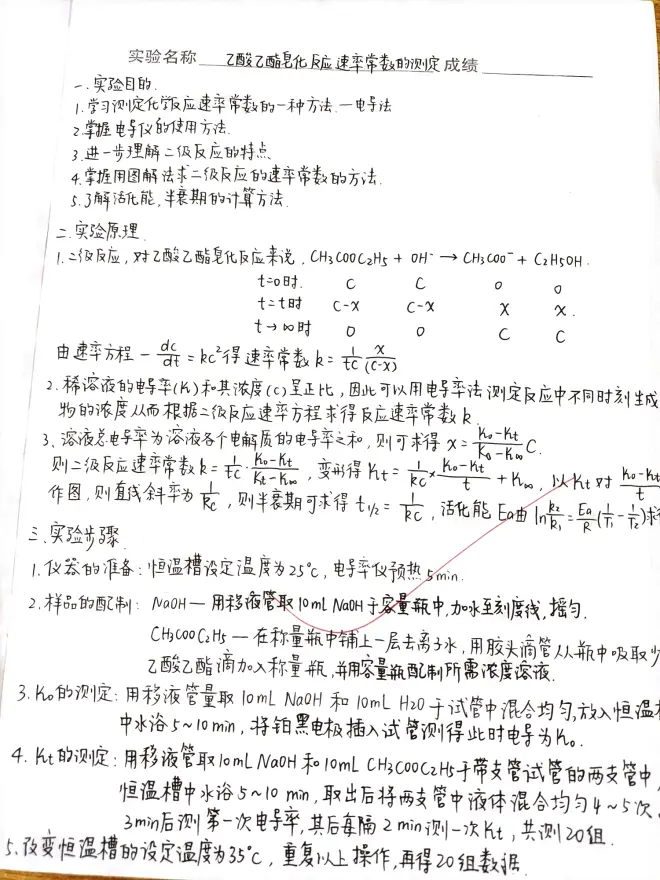 实验名称 乙酸乙酯皂化反应速率常数的测定 成绩
一、实验目的.
1.学习测定化学反应速率常数的一种方法.—电导法
2.掌握电导仪的使用方法.
3.进一步理解二级反应的特点.
4.掌握用图解法求二级反应的速率常数的方法.
5.了解活化能,半衰期的计算方法.
二.实验原理.
1.二级反应,对乙酸乙酯皂化反应来说, CH3COOC2H5 + OH⁻ → CH3COO⁻ + C2H5OH.
t=0时. C C 0 0
t=t时 C-X C-X X X.
t→∞时 0 0 C C
由速率方程 -dc/dt = kc²得速率常数 k= 1/tc X/(C-X)
2.稀溶液的电导率(K)和其浓度(c)呈正比,因此可以用电导率法测定反应中不同时刻生成
物的浓度从而根据二级反应速率方程求得反应速率常数k.
3、溶液总电导率为溶液各个电解质的电导率之和,则可求得 X= (K₀-Kt)/(K₀-K∞) C.
则二级反应速率常数k= 1/tc · (K₀-Kt)/(Kt-K∞) , 变形得 Kt= 1/kc × (K₀-Kt)/t + K∞, 以Kt对 (K₀-Kt)/t
作图,则直线斜率为 1/kc , 则半衰期可求得 t₁/₂= 1/kc , 活化能Ea由 ln k₂/k₁ = Ea/R (1/T₁ - 1/T₂)
三.实验步骤.
1.仪器的准备:恒温槽设定温度为25℃,电导率仪预热5min.
2.样品的配制: NaOH—用移液管取10mL NaOH于容量瓶中,加水至刻度线,摇匀.
CH3COOC2H5—在称量瓶中铺上一层去离子水,用胶头滴管从瓶中吸取少
乙酸乙酯滴加入称量瓶,并用容量瓶配制所需浓度溶液.
3.K₀的测定:用移液管量取10mL NaOH和10mL H2O于试管中混合均匀,放入恒温
中水浴5~10min,将铂黑电极插入试管测得此时电导为K₀.
4.Kt的测定:用移液管取10mL NaOH和10mL CH3COOC2H5于带支管试管的两支管中,
恒温槽中水浴5~10min,取出后将两支管中液体混合均匀4~5次.
3min后测第一次电导率,其后每隔2min测一次Kt,共测20组.
5.改变恒温槽的设定温度为35℃,重复以上操作,再得20组数据.